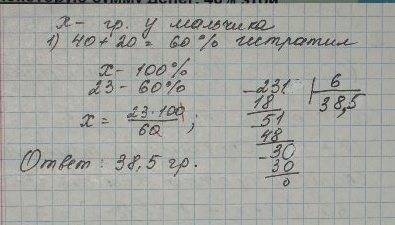 х - гр. у мальчика
1) 40 + 20 = 60% истратил
х - 100%
23 - 60%
х = 23·100 / 60 ;
Ответ : 38,5 гр.
231 | 6
18 | 38,5
51
48
30
30
0